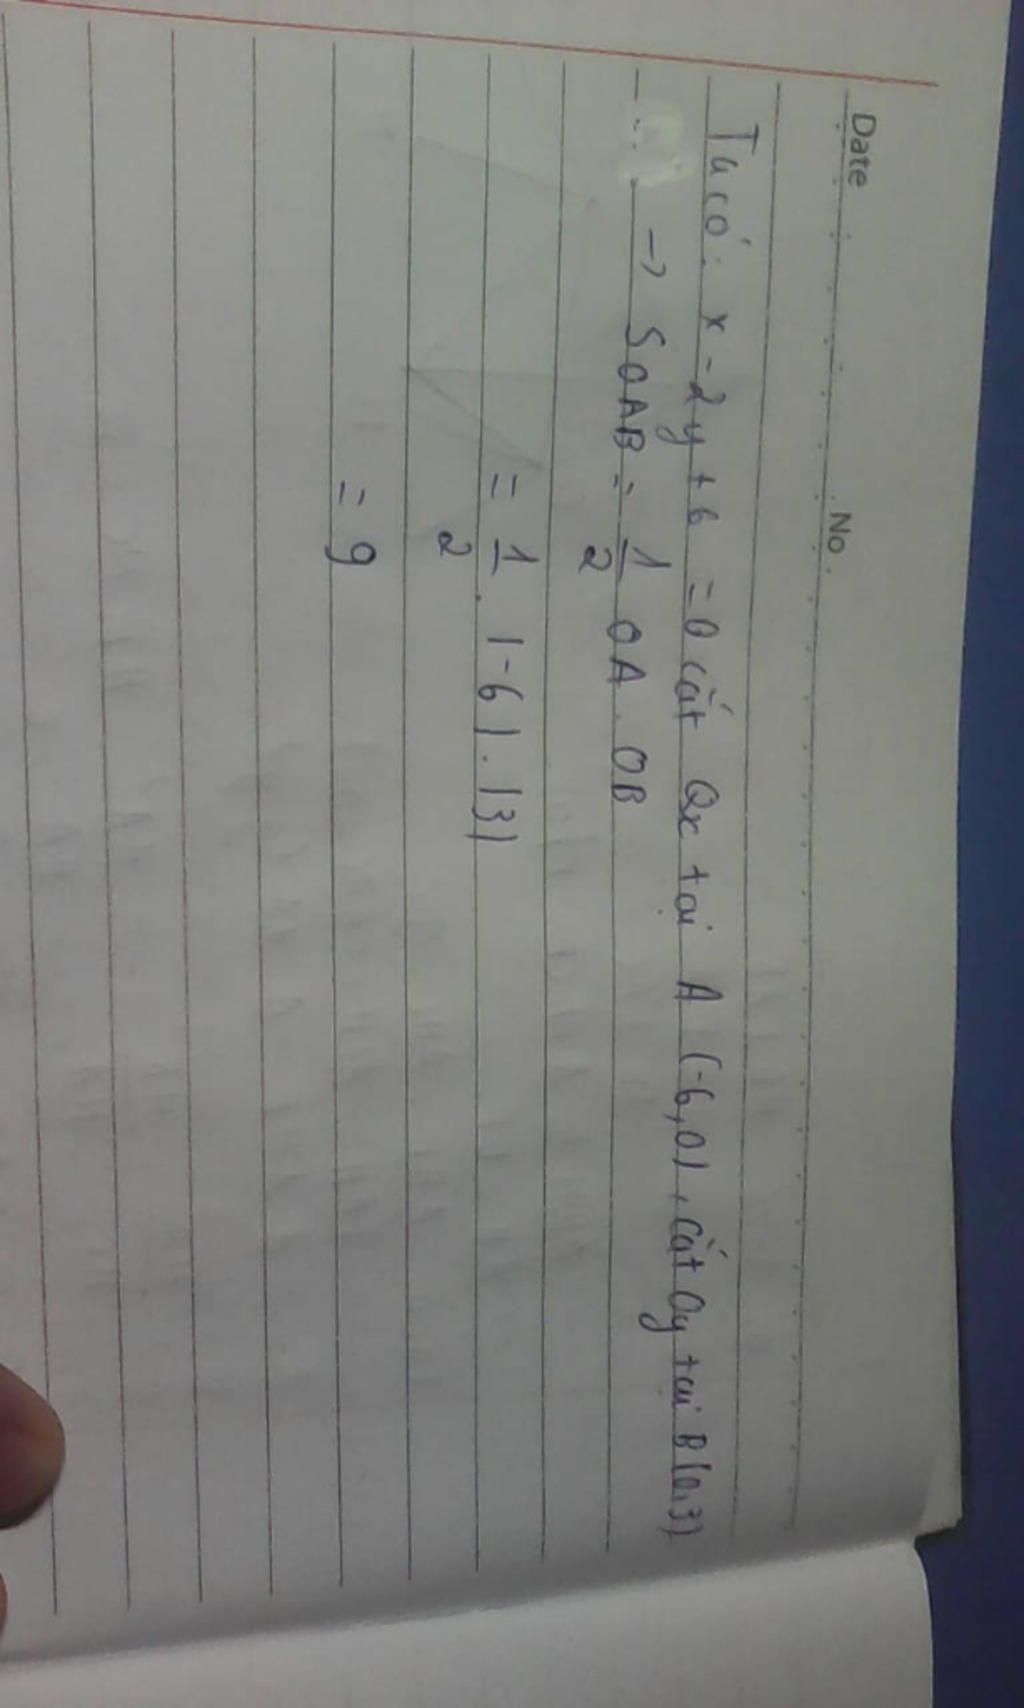 Date No.
Ta có: x - 2y + 6 = 0 cắt Ox tại A (-6,0), cắt Oy tại B(0,3)
→ SOAB = 1/2 OA . OB
= 1/2 . |-6| . |3|
= 9